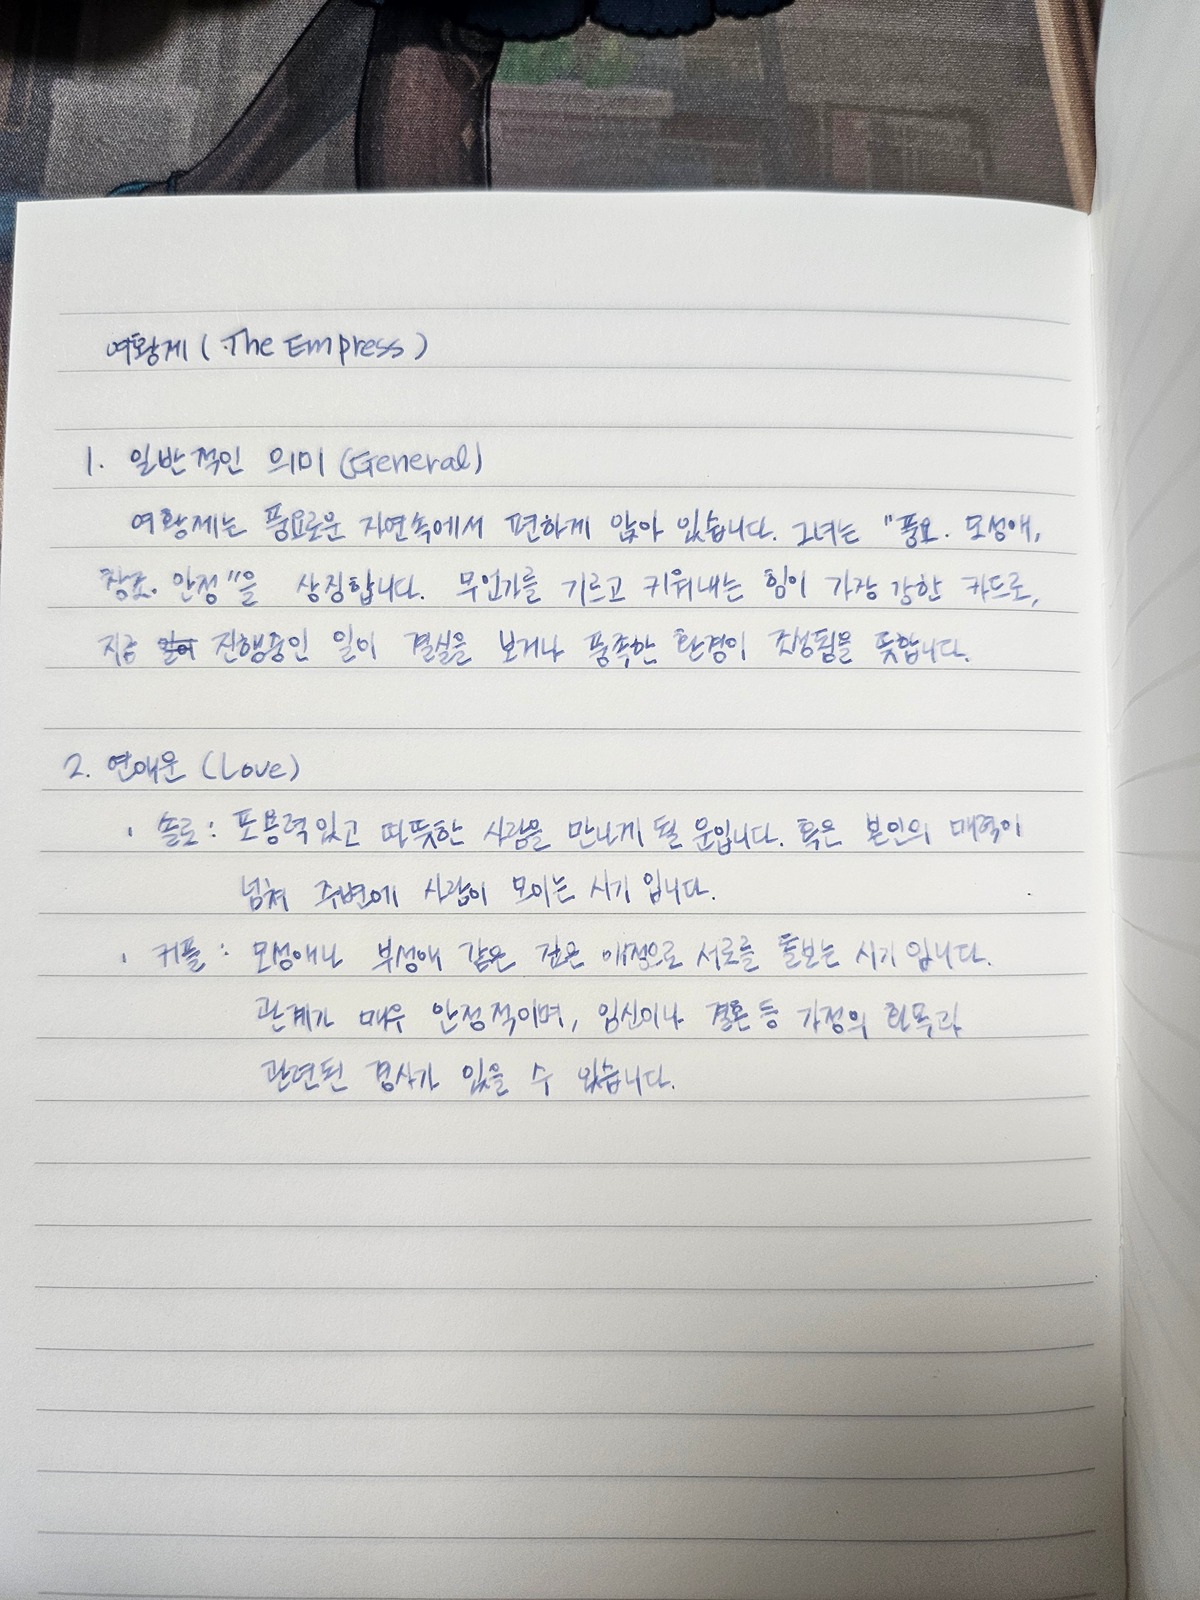 여황제 (The Empress)
1. 일반적인 의미 (General)
여황제는 풍요로운 자연속에서 편하게 앉아 있습니다. 그녀는 "풍요. 모성애,
창조. 안정"을 상징합니다. 무언가를 기르고 키워내는 힘이 가장 강한 카드로,
지금 진행중인 일이 결실을 보거나 풍족한 환경이 조성됨을 뜻합니다.
2. 연애운 (Love)
· 솔로 : 포용력있고 따뜻한 사람을 만나게 될 운입니다. 혹은 본인의 매력이
넘쳐 주변에 사람이 모이는 시기 입니다.
· 커플 : 모성애나 부성애 같은 깊은 애정으로 서로를 돌보는 시기 입니다.
관계가 매우 안정적이며, 임신이나 결혼 등 가정의 화목과
관련된 경사가 있을 수 있습니다.